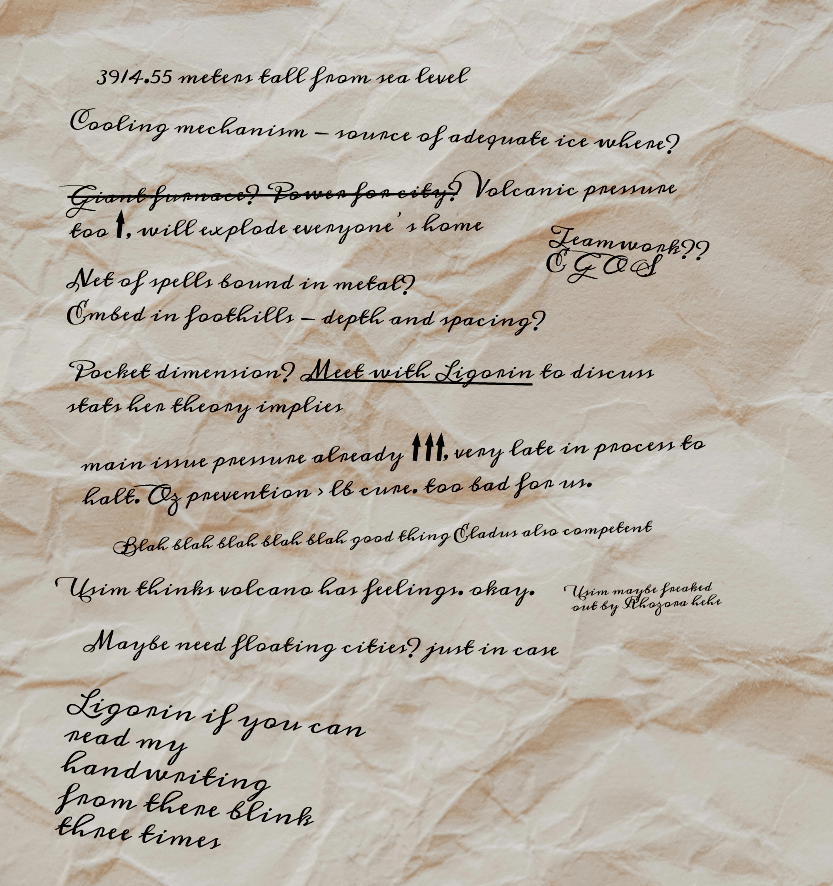 3914.55 meters tall from sea level
Cooling mechanism – source of adequate ice where?
Giant furnace? Power for city? Volcanic pressure
too ↑, will explode everyone's home
Teamwork??
E G O S
Net of spells bound in metal?
Embed in foothills – depth and spacing?
Pocket dimension? Meet with Ligorin to discuss
stats her theory implies
main issue pressure already ↑↑↑, very late in process to
halt. Oz prevention > lb cure. too bad for us.
Blah blah blah blah blah good thing Eladus also competent
Usim thinks volcano has feelings. okay.
Usim maybe freaked
out by Rhozora hehe
Maybe need floating cities? just in case
Ligorin if you can
read my
handwriting
from there blink
three times